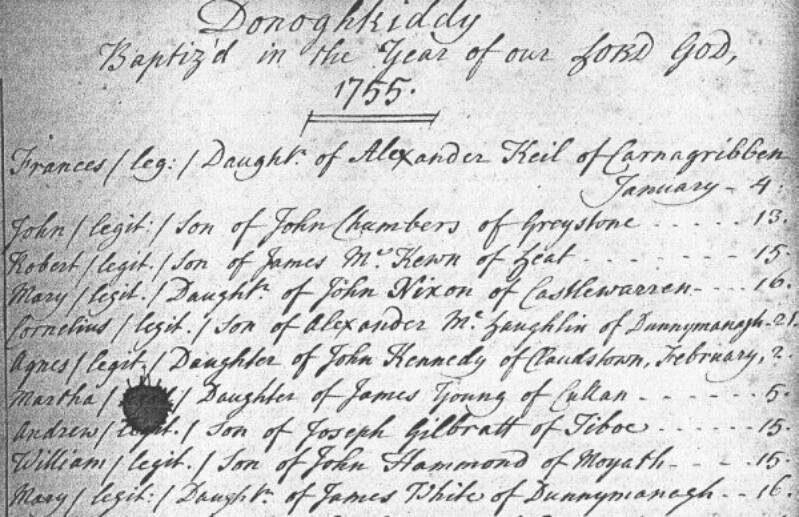 Donoghkiddy
Baptiz'd in the Year of our LORD GOD,
1755.
Frances / leg: / Daughr. of Alexander Keil of Carnagribben
January - 4.
John / legit: / Son of John Chambers of Greystone - - - - - - 13.
Robert / legit. / Son of James Mc. Kewn of Leat - - - - - - - 15.
Mary / legit. / Daughr. of John Nixon of Castlewarren - - - 16.
Cornelius / legit. / Son of Alexander Mc. Laughlin of Dunnymanagh - 21.
Agnes / legit. / Daughter of John Kennedy of Claudstown, February, 2
Martha / / Daughter of James Young of Cullan - - - - - - 5.
Andrew / legit. / Son of Joseph Gilbratt of Tiboe - - - - - 15.
William / legit. / Son of John Hammond of Moyath - - - - 15.
Mary / legit: / Daughr. of James White of Dunnymanagh - - 16.